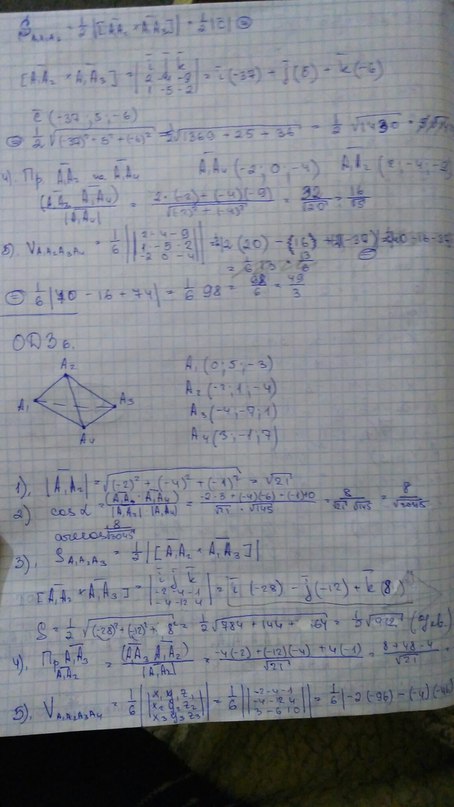 S A₁A₂ = 1/2 |[A₁A₂ × A₁A₃]| = 1/2 |c̄| ⊜
[A₁A₂ × A₁A₃] = | i j k ; 2 -4 -9 ; 1 -5 -2 | = i(-37) - j(5) + k(-6)
c̄ (-37; 5; -6)
⊜ 1/2 √((-37)²+5²+(-6)²) = 1/2 √(1369 + 25 + 36) = 1/2 √1430
4). Пр A₁A₂ на A₁A₄ A₁A₄ (-2; 0; -4) A₁A₂ (2; -4; -9)
(A₁A₂ A₁A₄) / |A₁A₄| = (2·(-2) + (-4)(-9)) / √((-2)²+(-4)²) = 32/√20 = 16/√5
5). V A₁A₂A₃A₄ = 1/6 || 2 -4 -9 ; 1 -5 -2 ; -2 0 -4 ||
⊜ 1/6 |40 - 16 + 74| = 1/6 98 = 98/6 = 49/3
ОДЗ 6.
A₂
A₁
A₃
A₄
A₁ (0; 5; -3)
A₂ (-2; 1; -4)
A₃ (-4; -7; 1)
A₄ (3; -1; 7)
1). |A₁A₂| = √((-2)² + (-4)² + (-1)²) = √21
2) cos α = (A₁A₂ · A₁A₄) / (|A₁A₂| |A₁A₄|) = (-2·3 + (-4)(-6) + (-1)10) / (√21 · √145) = 8 / (√21 √145) = 8/√3045
arccos 8/√3045
3). S A₁A₂A₃ = 1/2 |[A₁A₂ × A₁A₃]|
[A₁A₂ × A₁A₃] = | i j k ; -2 -4 -1 ; -4 -12 4 | = i(-28) - j(-12) + k(8)
S = 1/2 √((-28)²+(-12)²+8²) = 1/2 √(784 + 144 + 64) = 1/2 √992 (ед.кв.)
4). Пр A₁A₃ A₁A₂ = (A₁A₃ A₁A₂) / |A₁A₂| = (-4(-2) + (-12)(-4) + 4(-1)) / √21 = (8+48-4) / √21
5). V A₁A₂A₃A₄ = 1/6 || x₁ y₁ z₁ ; x₂ y₂ z₂ ; x₃ y₃ z₃ || = 1/6 || -2 -4 -1 ; -4 -12 4 ; 3 -6 10 || = 1/6 |-2(-96) - (-4)(